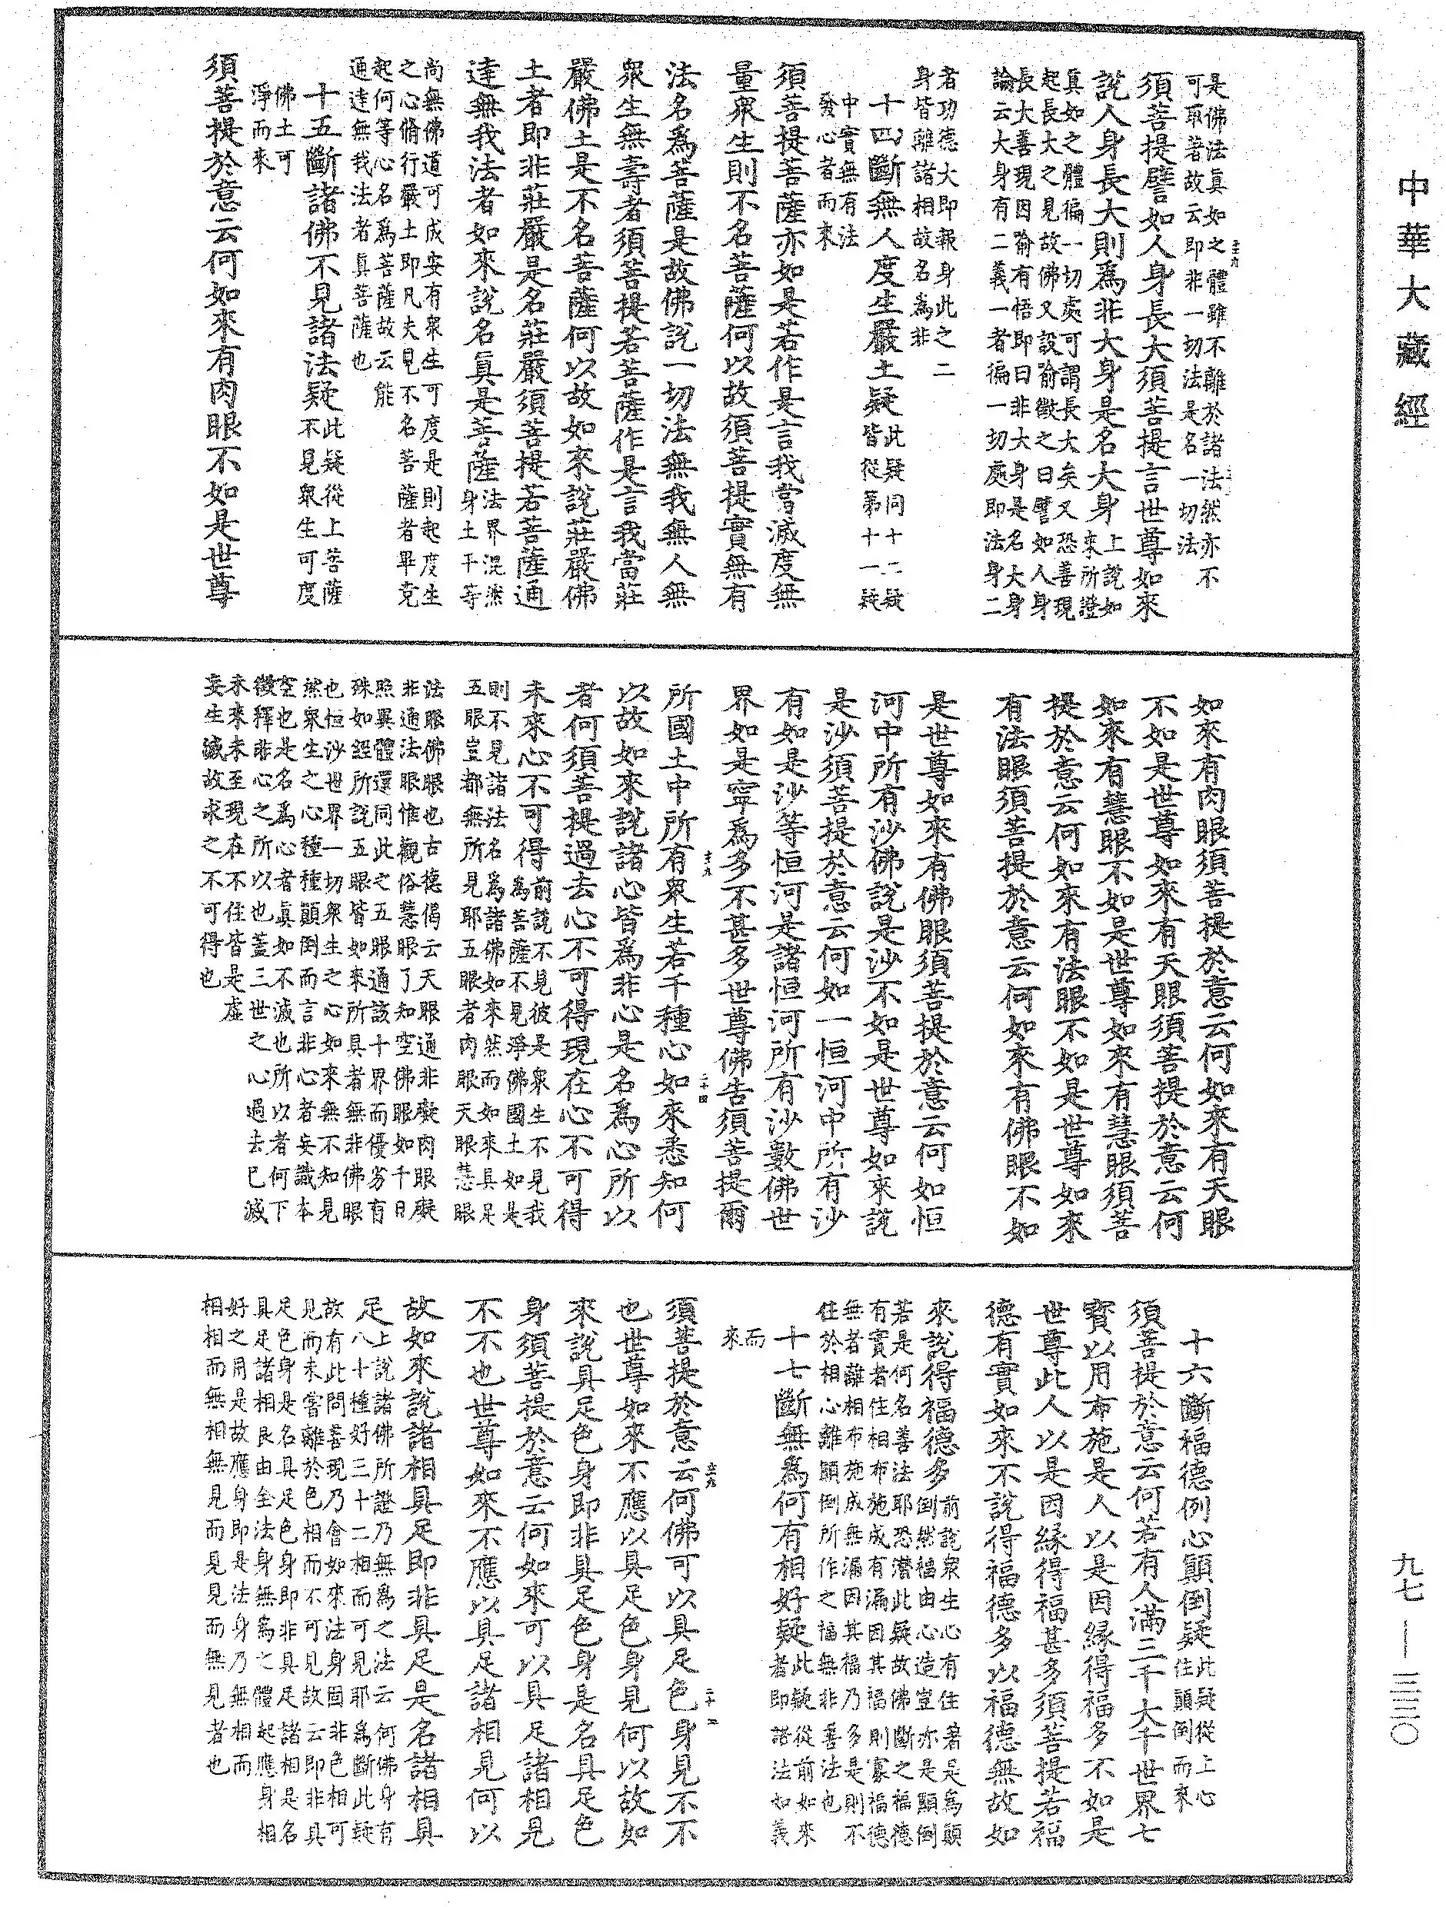 中華大藏經
是佛法真如之體雖不離於諸法然亦不
可取著故云即非一切法是名一切法
須菩提譬如人身長大須菩提言世尊如來
說人身長大則爲非大身是名大身上說如來所證
真如之體徧一切處可謂長大矣又恐善現
起長大之見故佛又設喻徵之曰譬如人身
長大善現因喻有悟即曰非大身是名大身
論云大身有二義一者徧一切處即法身二
者功德大即報身此之二
身皆離諸相故名爲非
十四斷無人度生嚴土疑此疑同十二疑皆從第十一疑
中實無有法
發心者而來
須菩提菩薩亦如是若作是言我當滅度無
量衆生則不名菩薩何以故須菩提實無有
法名爲菩薩是故佛說一切法無我無人無
衆生無壽者須菩提若菩薩作是言我當莊
嚴佛土是不名菩薩何以故如來說莊嚴佛
土者即非莊嚴是名莊嚴須菩提若菩薩通
達無我法者如來說名真是菩薩法界混然身土平等
尚無佛道可成安有衆生可度是則起度生
之心脩行嚴土即凡夫見不名菩薩者畢竟
起何等心名爲菩薩故云能
通達無我法者真菩薩也
十五斷諸佛不見諸法疑此疑從上菩薩不見衆生可度
佛土可
淨而來
須菩提於意云何如來有肉眼不如是世尊
如來有肉眼須菩提於意云何如來有天眼
不如是世尊如來有天眼須菩提於意云何
如來有慧眼不如是世尊如來有慧眼須菩
提於意云何如來有法眼不如是世尊如來
有法眼須菩提於意云何如來有佛眼不如
是世尊如來有佛眼須菩提於意云何如恒
河中所有沙佛說是沙不如是世尊如來說
是沙須菩提於意云何如一恒河中所有沙
有如是沙等恒河是諸恒河所有沙數佛世
界如是寧爲多不甚多世尊佛告須菩提爾
所國土中所有衆生若干種心如來悉知何
以故如來說諸心皆爲非心是名爲心所以
者何須菩提過去心不可得現在心不可得
未來心不可得前說不見彼是衆生不見我爲菩薩不見淨佛國土如是
則不見諸法名爲諸佛如來然而如來具足
五眼豈都無所見耶五眼者肉眼天眼慧眼
法眼佛眼也古德偈云天眼通非礙肉眼礙
非通法眼惟觀俗慧眼了知空佛眼如千日
照異體還同此之五眼通該十界而優劣有
殊如經所說五眼皆如來所具者無非佛眼
也恒沙世界一切衆生之心如來無不知見
然衆生之心種種顛倒而言非心者妄識本
空也是名爲心者真如不滅也所以者何下
徵釋非心之所以也蓋三世之心過去已滅
未來未至現在不住皆是虛
妄生滅故求之不可得也
十六斷福德例心顛倒疑此疑從上心住顛倒而來
須菩提於意云何若有人滿三千大千世界七
寶以用布施是人以是因緣得福多不如是
世尊此人以是因緣得福甚多須菩提若福
德有實如來不說得福德多以福德無故如
來說得福德多前說衆生心有住著是爲顛倒然福由心造豈亦是顛倒
若是何名善法耶恐潛此疑故佛斷之福德
有實者住相布施成有漏因其福則寡福德
無者離相布施成無漏因其福乃多是則不
住於相心離顛倒所作之福無非善法也
十七斷無爲何有相好疑此疑從前如來者即諸法如義
而
來
須菩提於意云何佛可以具足色身見不不
也世尊如來不應以具足色身見何以故如
來說具足色身即非具足色身是名具足色
身須菩提於意云何如來可以具足諸相見
不不也世尊如來不應以具足諸相見何以
故如來說諸相具足即非具足是名諸相具
足上說諸佛所證乃無爲之法云何佛身有八十種好三十二相而可見耶爲斷此疑
故有此問善現乃會如來法身固非色相可
見而未嘗離於色相而不可見故云即非具
足色身是名具足色身即非具足諸相是名
具足諸相良由全法身無爲之體起應身相
好之用是故應身即是法身乃無相而
相相而無相無見而見見而無見者也
九七—三三〇